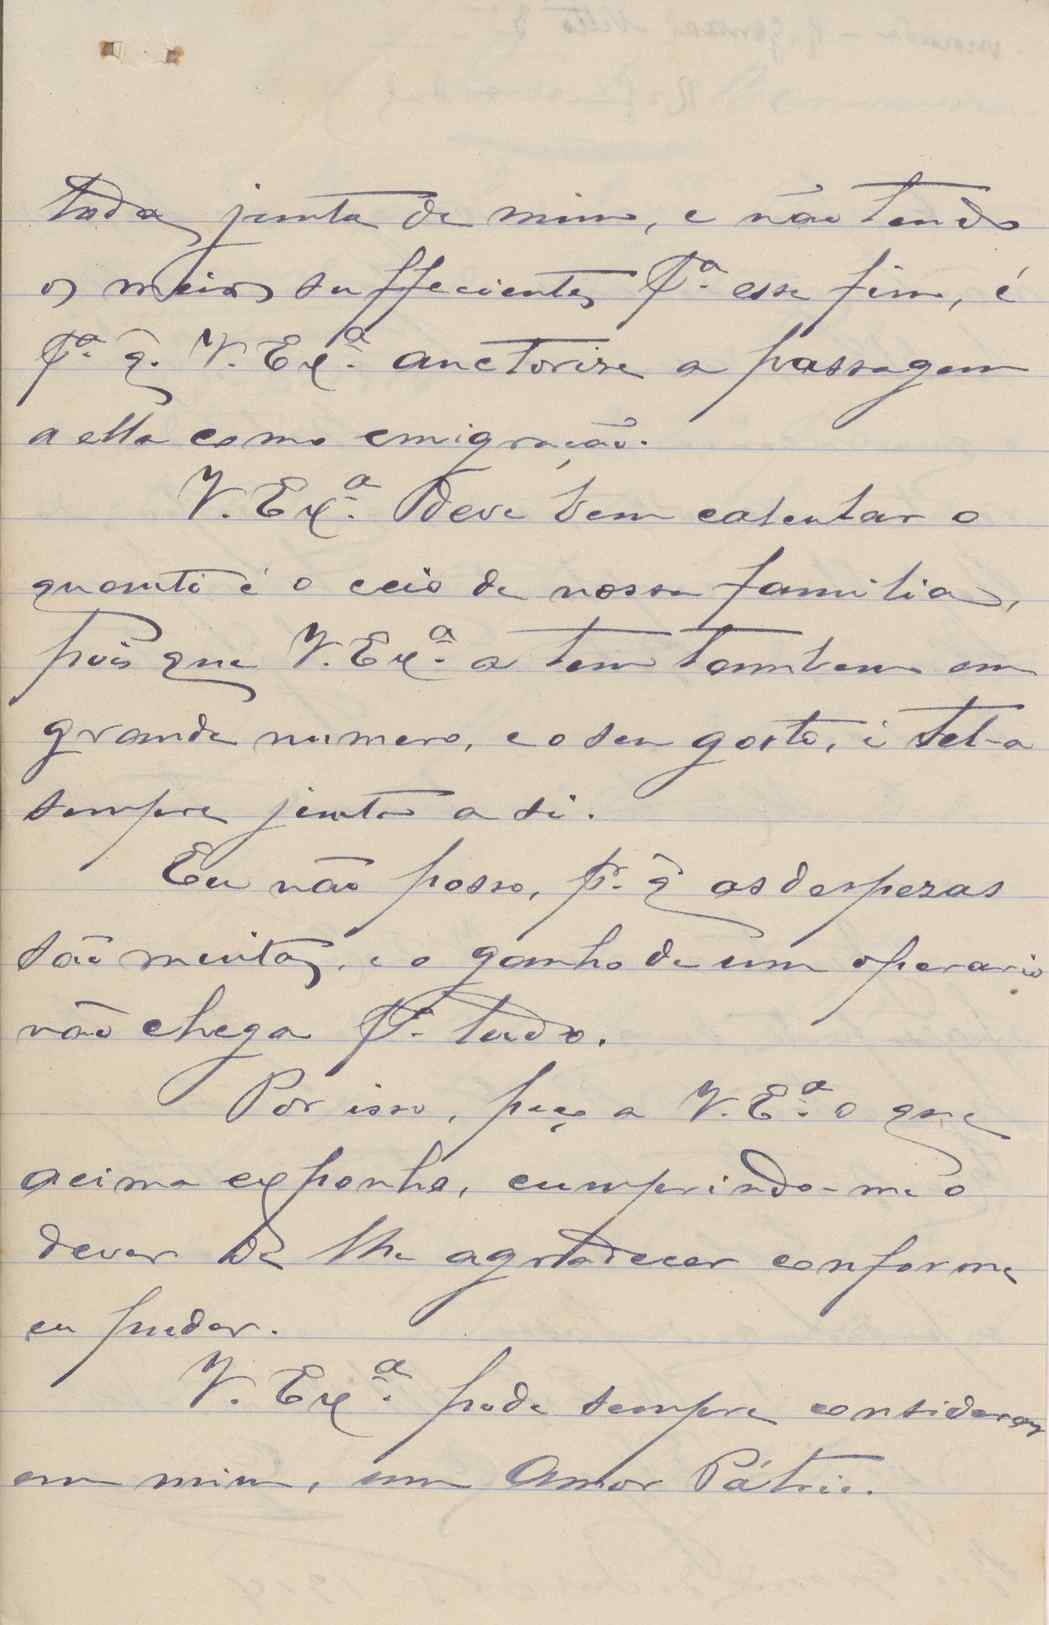 toda junta de mim, e não tendo
os meios suffecientes Pª. esse fim, é
Pª. q̃. V. Exª. auctorise a passagem
a ella como emigração.
V. Exª. deve bem calcular o
quanto é o ceio de nossa familia,
pois que V. Exª. a tem tambem em
grande numero, e o seu gosto, é tel-a
sempre junto a si.
Eu não posso, pr. q̃ as despezas
são muitas, e o ganho de um operario
não chega Pª. tudo.
Por isso, peço a V. Eª. o que
acima exponho, cumprindo-me o
dever de lhe agradecer conforme
eu puder.
V. Exª. pode sempre considerar
em mim, um Amor Pátrio.